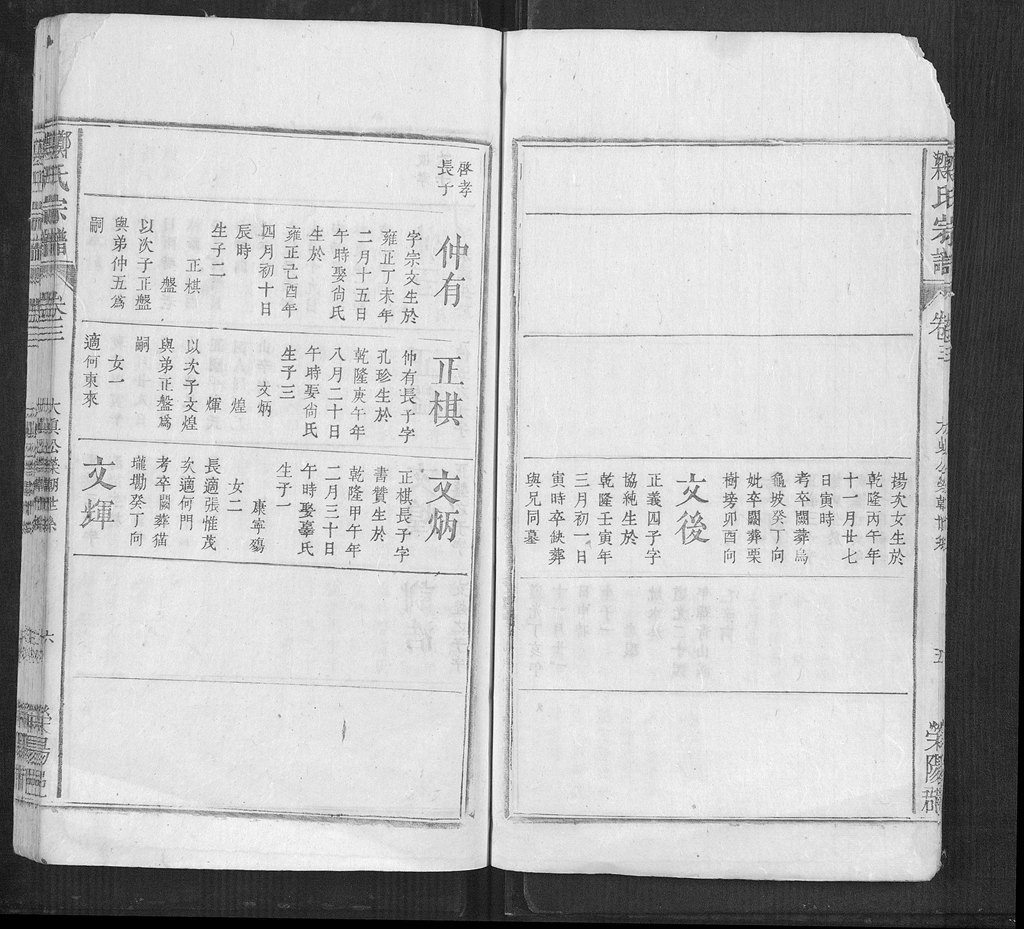 氏宗譜
卷三
五
滎陽郡
揚次女生於
乾隆丙午年
十一月廿七
日寅時
考卒闕葬烏
龜坡癸丁向
妣卒闕葬栗
樹塝卯酉向
文後
正義四子字
協純生於
乾隆壬寅年
三月初一日
寅時卒缺葬
與兄同墓
啓孝
長子
仲有
字宗文生於
雍正丁未年
二月十五日
午時娶尙氏
生於
雍正己酉年
四月初十日
辰時
生子二
正棋
盤
以次子正盤
與弟仲五爲
嗣
正棋
仲有長子字
孔珍生於
乾隆庚午年
八月二十日
午時娶尙氏
生子三
文炳
煌
輝
以次子文煌
與弟正盤爲
嗣
女一
適何東來
文炳
正棋長子字
書贊生於
乾隆甲午年
二月三十日
午時娶氏
生子一
康寧殤
女二
長適張惟茂
次適何門
考卒闕葬猫
壠墈癸丁向
文輝
鄭氏宗譜
卷三
六